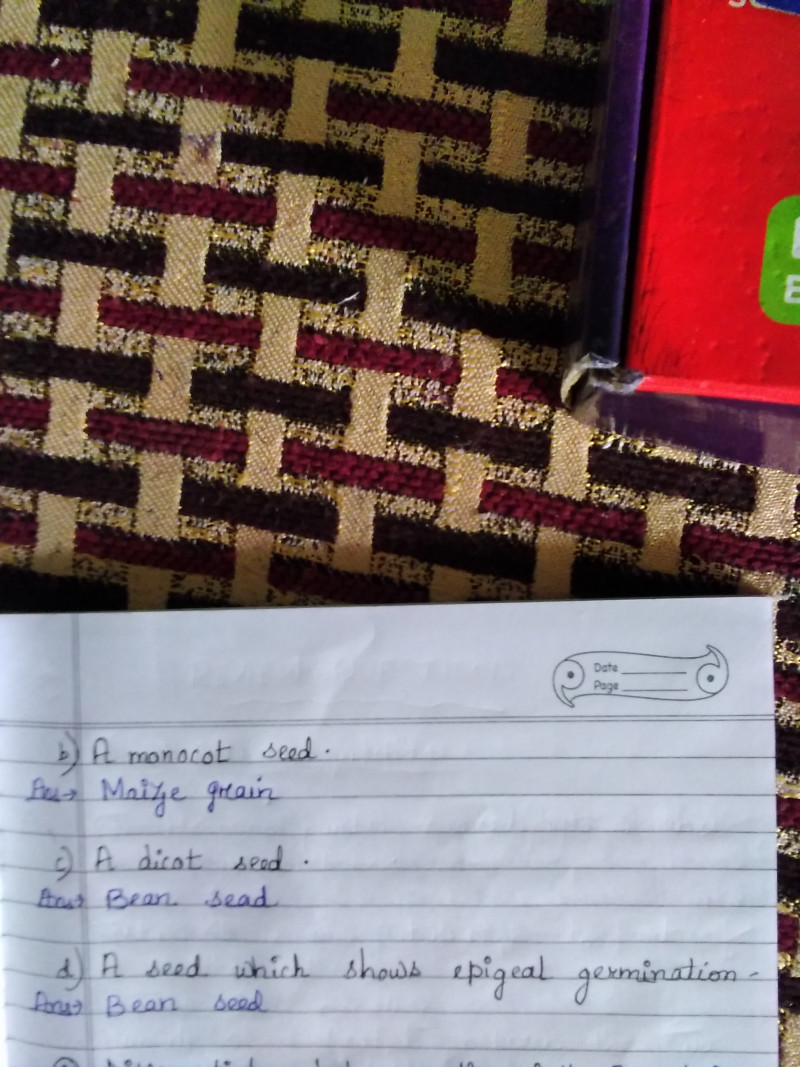 Date
Page
b) A monocot seed.
Ans→ Maize grain
c) A dicot seed.
Ans→ Bean sead
d) A seed which shows epigeal germination-
Ans→ Bean seed